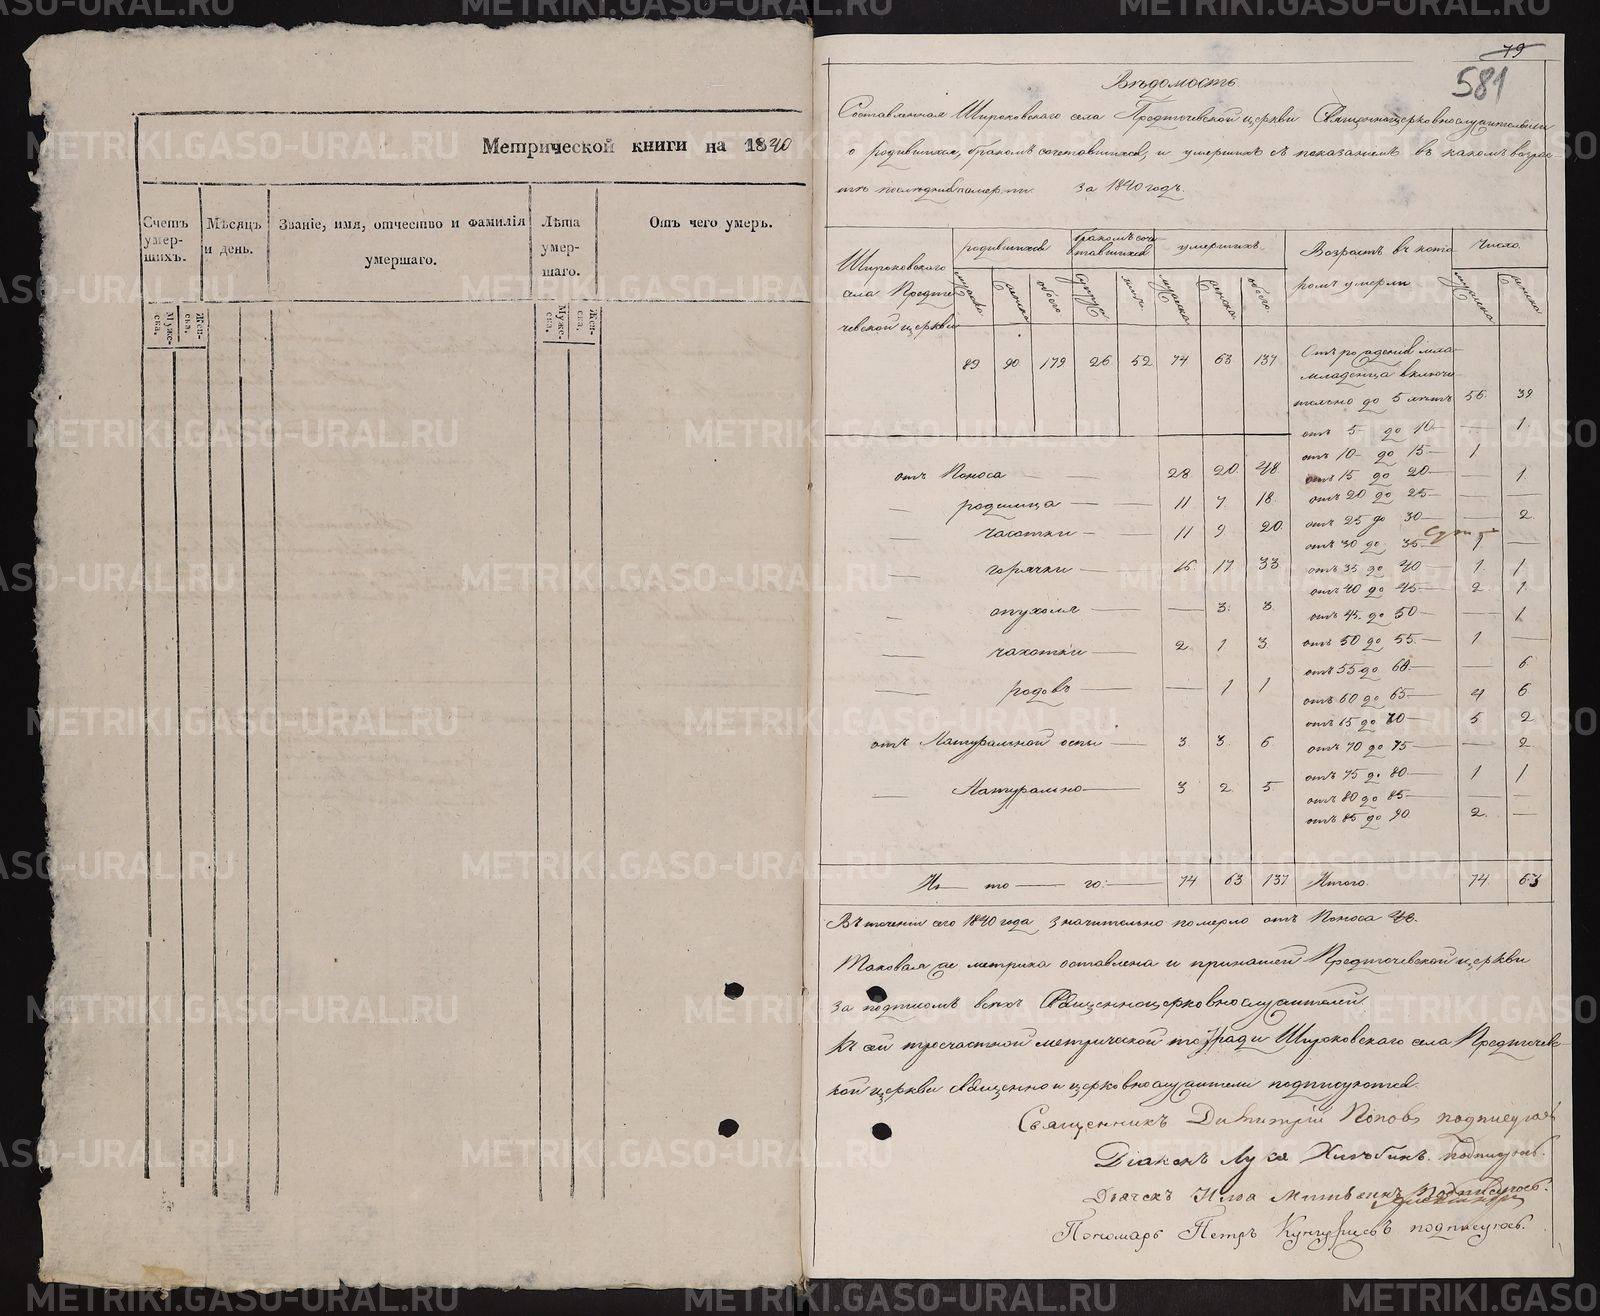 Метрической книги на 1840
Счетъ умер- шихъ.
Мѣсяцъ и день.
Званіе, имя, отчество и фамилія умершаго.
Лѣта умер- шаго.
Отъ чего умеръ.
Муже- ска.
Жен- ска.
Муже- ска.
Жен- ска.
79
581
Вѣдомость
Составленная Широковскаго села Предтечевской церкви Священноцерковнослужителями
о родившихся, бракомъ сочетавшихся, и умершихъ съ показаніемъ въ какомъ возрас-
тѣ послѣдніе померли. За 1840 годъ.
Широковскаго села Предте- чевской церкви
родившихся
бракомъ соче- тавшихся
умершихъ
Возрастъ въ кото- ромъ умерли
Число
мужеска женска обоего
мужеска женска обоего
мужеска женска
89 90 179 26 52 74 63 137
Отъ рожденія мла-
младенца включи-
тельно до 5 лѣтъ 56 39
отъ 5 до 10 — — 1
отъ 10 до 15 — 1
отъ 15 до 20 — 1
отъ 20 до 25 — — —
отъ 25 до 30 — — 2
отъ 30 до 35 — 1 —
отъ 35 до 40 — 1 1
отъ 40 до 45 — 2 1
отъ 45 до 50 — — 1
отъ 50 до 55 — 1 —
отъ 55 до 60 — — 6
отъ 60 до 65 — 4 6
отъ 65 до 70 — 5 2
отъ 70 до 75 — — 2
отъ 75 до 80 — 1 1
отъ 80 до 85 — — —
отъ 85 до 90 2 —
отъ Поноса — — 28 20 48
— родимца — — 11 7 18
— — 11 9 20
— горячки — 16 17 33
— опухоли — — 3 3
— чахотки — 2 1 3
— родовъ — — 1 1
отъ Натуральной оспы — 3 3 6
— Натурально — 3 2 5
И — то — го: — 74 63 137
Итого 74 63
Въ теченіи сего 1840 года, значительно померло отъ Поноса 48.
Таковая же метрика оставлена и при нашей Предтечевской церкви
за подписомъ всехъ Священноцерковнослужителей.
Къ сей троечастной метрической тетради Широковскаго села Предтечевс-
кой церкви священно и церковнослужители подписуются.
Священникъ Димитрій Поповъ подписуюсь
Діаконъ Лука Хлѣбинъ подписуюсь.
Дьячекъ Илья подписуюсь.
Пономарь Петръ подписуюсь.
METRIKI.GASO-URAL.RU